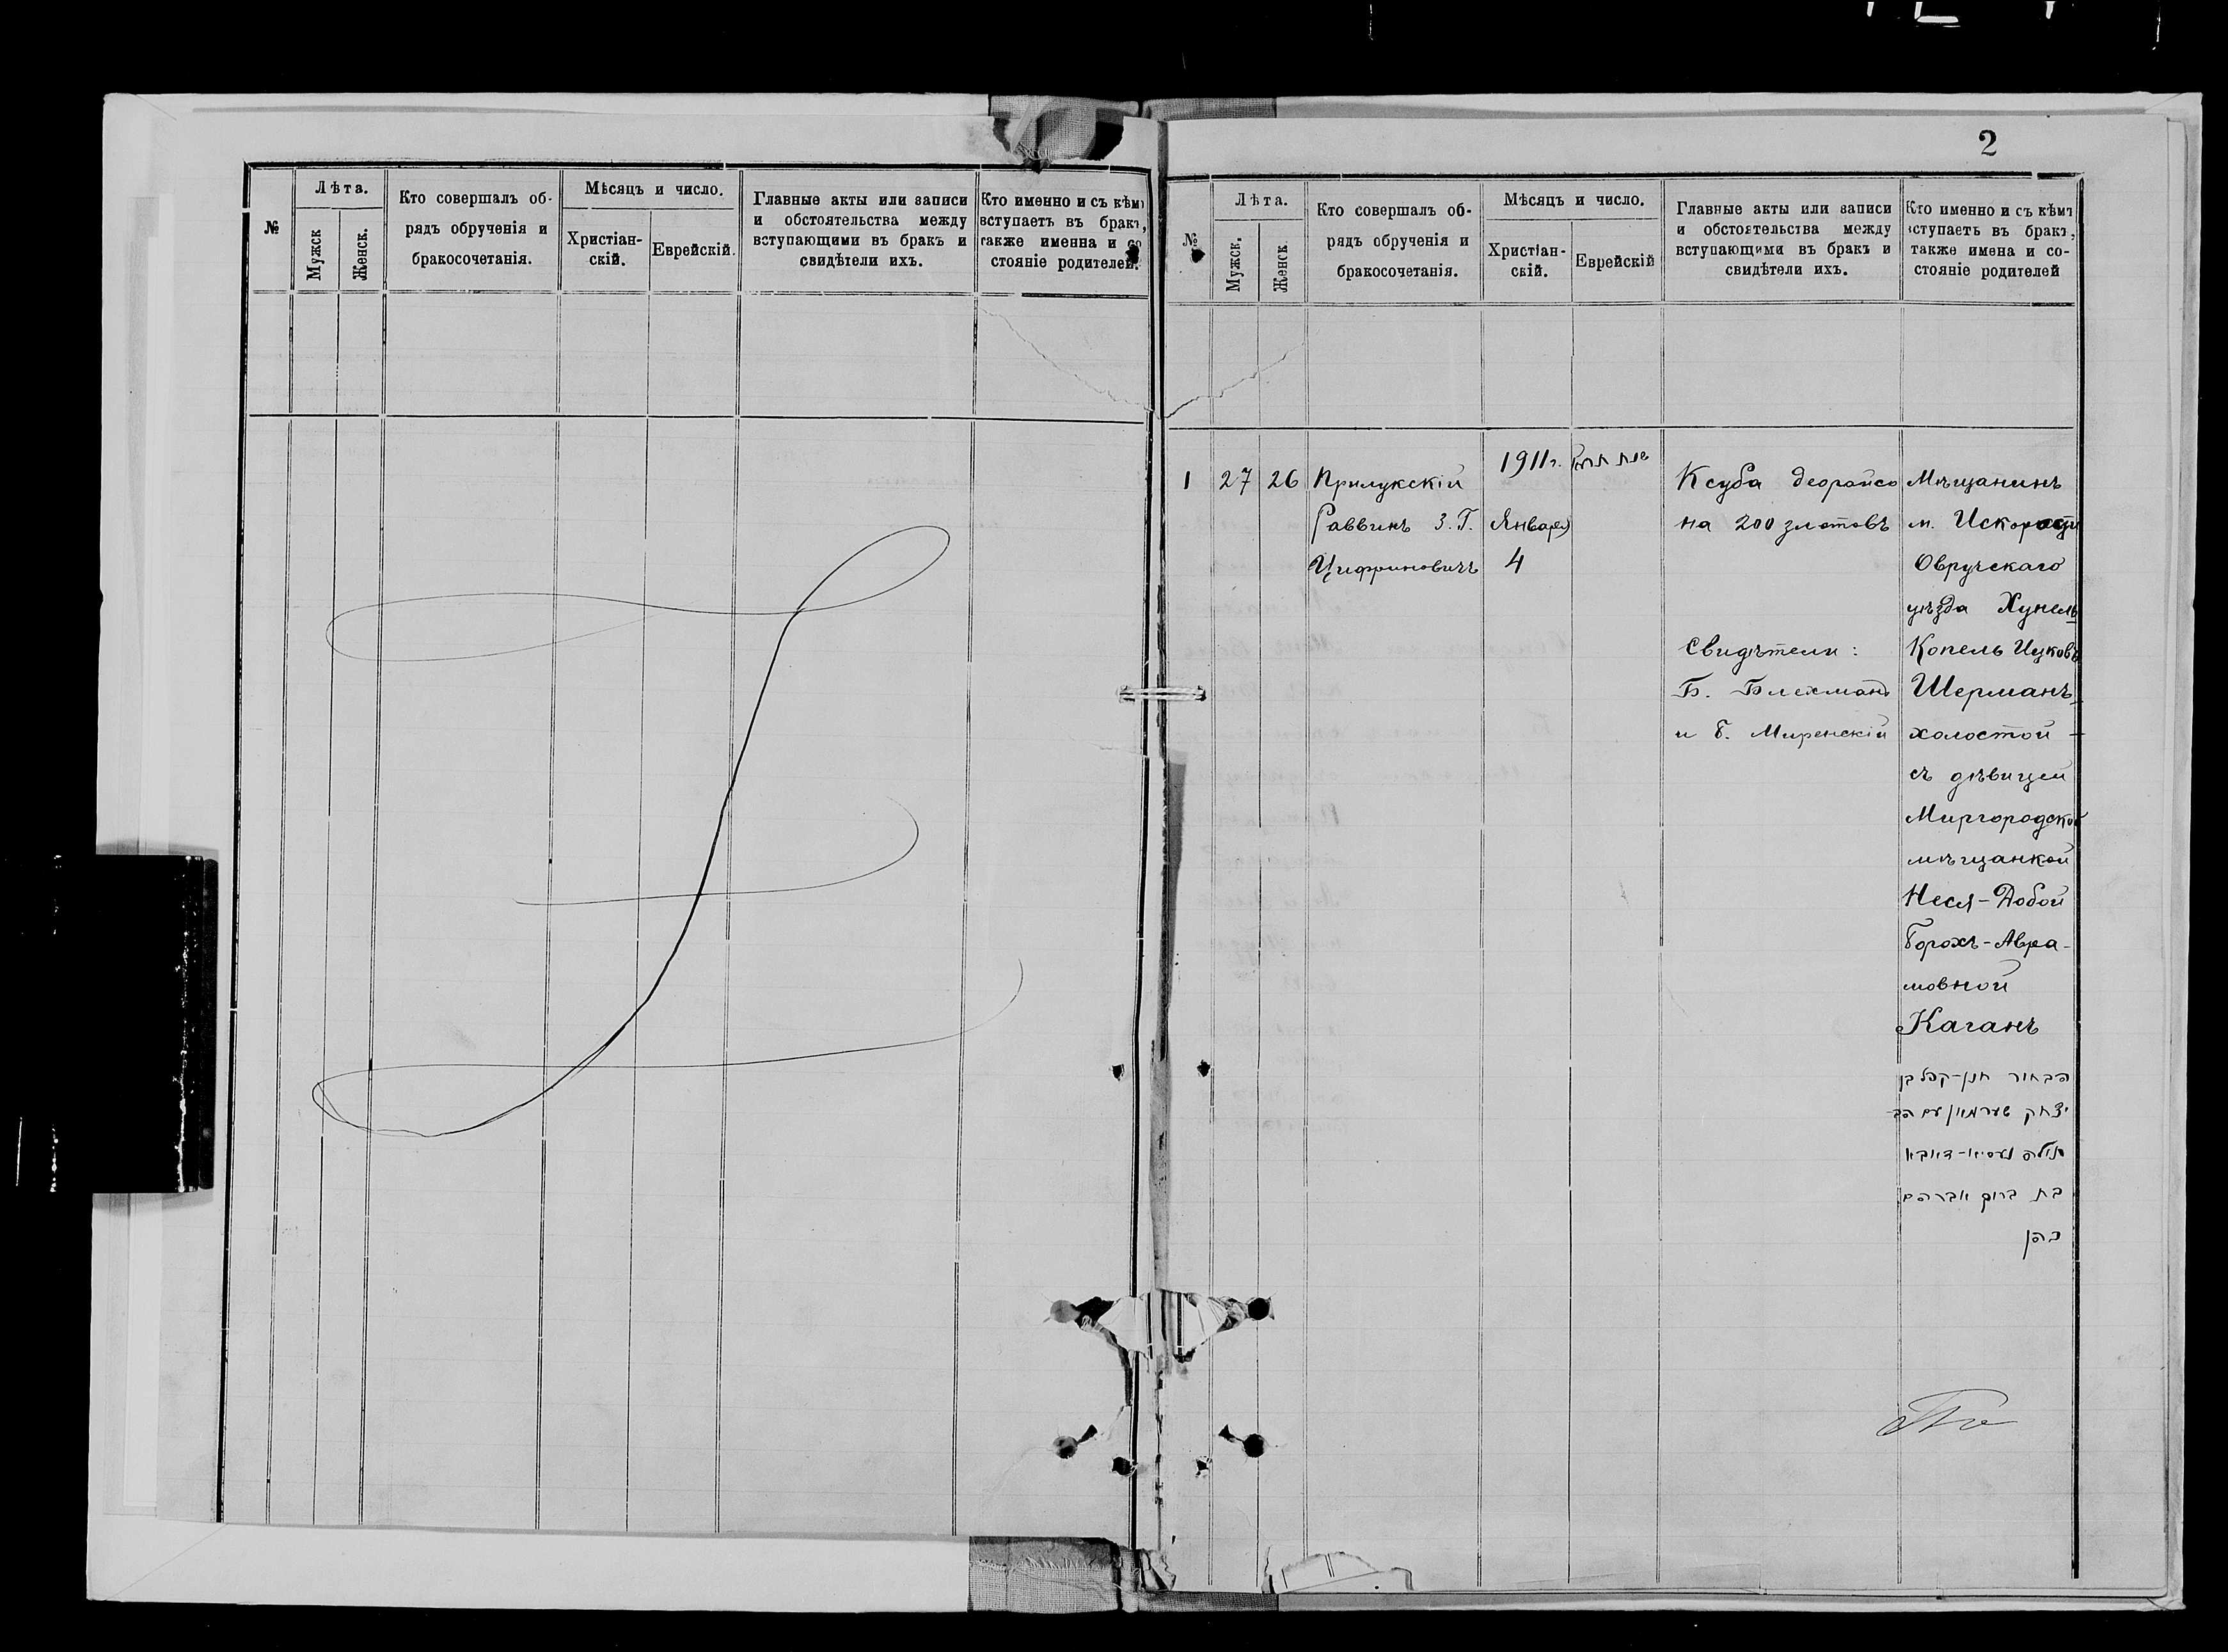 №
Лѣта.
Мужск
Женск.
Кто совершалъ об-
рядъ обрученія и
бракосочетанія.
Мѣсяцъ и число.
Христіан-
скій.
Еврейскій.
Главные акты или записи
и обстоятельства между
вступающими въ бракъ и
свидѣтели ихъ.
Кто именно и съ кѣмъ
вступаетъ въ бракъ,
также именна и со
стояніе родителей.
2
№
Лѣта.
Мужск.
Женск.
Кто совершалъ об-
рядъ обрученія и
бракосочетанія.
Мѣсяцъ и число.
Христіан-
скій.
Еврейскій
Главные акты или записи
и обстоятельства между
вступающими въ бракъ и
свидѣтели ихъ.
Кто именно и съ кѣмъ
вступаетъ въ бракъ,
также имена и со-
стояніе родителей
1
27
26
Прилукскій
Раввинъ З. Г.
Цифриновичъ
1911 г.
Января
4
שנת
Ксуба деорайсо
на 200 злотовъ
Свидѣтели:
Б. Блехманъ
и Б. Миренскій
Мѣщанинъ
м. Искорости
Овручскаго
уѣзда Хунель
Копель Ицковъ
Шерманъ
холостой -
съ дѣвицей
Миргородской
мѣщанкой
Неся-Добой
Борохъ-Авра-
мовной
Каганъ
הבחור חנן-קפל בן
יצחק שערמאן עם הב-
תולה נעסיא-דאבא
בת ברוך אברהם
כהן